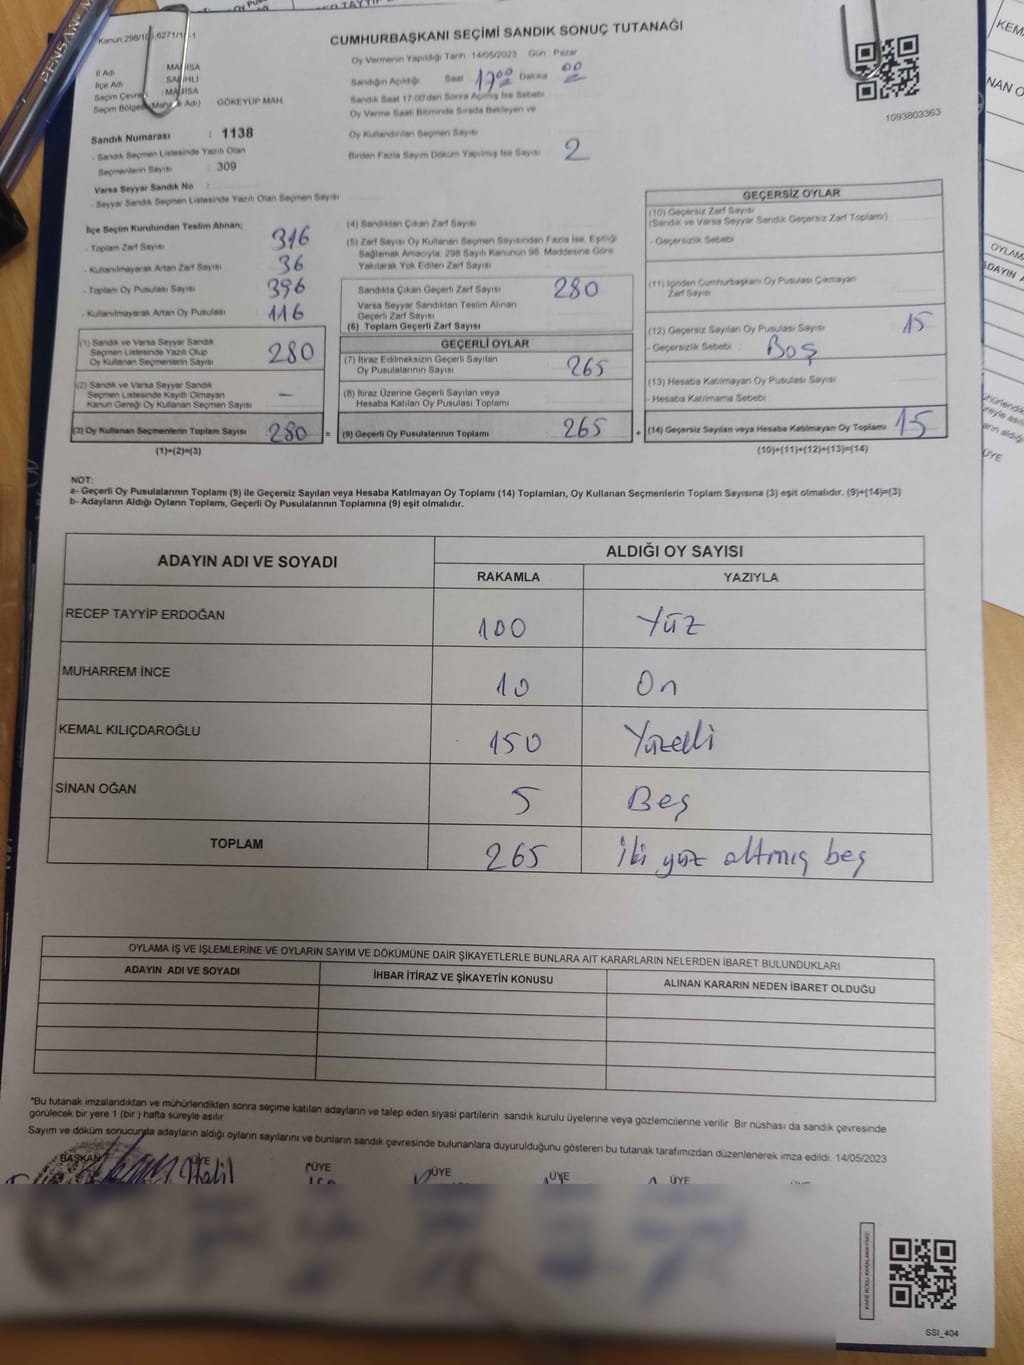 Kanun:298/10
CUMHURBAŞKANI SEÇİMİ SANDIK SONUÇ TUTANAĞI
Oy Vermenin Yapıldığı Tarih 14/05/2023 Gün Pazar
Sandığın Açıldığı Saat 17 00 Dakika 00
Sandık Saat 17:00'den Sonra Açmış İse Sebebi
Oy Verme Saati Bitiminde Sırada Bekleyen ve
Oy Kullandırılan Seçmen Sayısı
Birden Fazla Sayım Döküm Yapılmış İse Sayısı 2
İl Adı
İlçe Adı
Seçim Bölgesi GÖKEYÜP MAH.
Sandık Numarası : 1138
- Sandık Seçmen Listesinde Yazılı Olan
Seçmenlerin Sayısı : 309
Varsa Seyyar Sandık No :
- Seyyar Sandık Seçmen Listesinde Yazılı Olan Seçmen Sayısı
1093803363
İlçe Seçim Kurulundan Teslim Alınan;
- Toplam Zarf Sayısı 316
- Kullanılmayarak Artan Zarf Sayısı 36
- Toplam Oy Pusulası Sayısı 396
- Kullanılmayarak Artan Oy Pusulası 116
(1) Sandık ve Varsa Seyyar Sandık
Seçmen Listesinde Yazılı Olup
Oy Kullanan Seçmenlerin Sayısı 280
(2) Sandık ve Varsa Seyyar Sandık
Seçmen Listesinde Kayıtlı Olmayan
Kanun Gereği Oy Kullanan Seçmen Sayısı –
(3) Oy Kullanan Seçmenlerin Toplam Sayısı 280 =
(1)+(2)=(3)
(4) Sandıktan Çıkan Zarf Sayısı
(5) Zarf Sayısı Oy Kullanan Seçmen Sayısından Fazla İse, Eşitliği
Sağlamak Amacıyla, 298 Sayılı Kanunun 98. Maddesine Göre
Yakılarak Yok Edilen Zarf Sayısı
Sandıkta Çıkan Geçerli Zarf Sayısı 280
Varsa Seyyar Sandıktan Teslim Alınan
Geçerli Zarf Sayısı
(6) Toplam Geçerli Zarf Sayısı
GEÇERLİ OYLAR
(7) İtiraz Edilmeksizin Geçerli Sayılan
Oy Pusulalarının Sayısı 265
(8) İtiraz Üzerine Geçerli Sayılan veya
Hesaba Katılan Oy Pusulası Toplamı
(9) Geçerli Oy Pusulalarının Toplamı 265 +
GEÇERSİZ OYLAR
(10) Geçersiz Zarf Sayısı
(Sandık ve Varsa Seyyar Sandık Geçersiz Zarf Toplamı)
- Geçersizlik Sebebi
(11) İçinden Cumhurbaşkanı Oy Pusulası Çıkmayan
Zarf Sayısı
(12) Geçersiz Sayılan Oy Pusulası Sayısı 15
- Geçersizlik Sebebi : Boş
(13) Hesaba Katılmayan Oy Pusulası Sayısı
- Hesaba Katılmama Sebebi
(14) Geçersiz Sayılan veya Hesaba Katılmayan Oy Toplamı 15
(10)+(11)+(12)+(13)=(14)
NOT:
a- Geçerli Oy Pusulalarının Toplamı (9) ile Geçersiz Sayılan veya Hesaba Katılmayan Oy Toplamı (14) Toplamları, Oy Kullanan Seçmenlerin Toplam Sayısına (3) eşit olmalıdır. (9)+(14)=(3)
b- Adayların Aldığı Oyların Toplamı, Geçerli Oy Pusulalarının Toplamına (9) eşit olmalıdır.
ADAYIN ADI VE SOYADI ALDIĞI OY SAYISI
RAKAMLA YAZIYLA
RECEP TAYYİP ERDOĞAN 100 Yüz
MUHARREM İNCE 10 On
KEMAL KILIÇDAROĞLU 150 Yüzelli
SİNAN OĞAN 5 Beş
TOPLAM 265 iki yüz altmış beş
OYLAMA İŞ VE İŞLEMLERİNE VE OYLARIN SAYIM VE DÖKÜMÜNE DAİR ŞİKAYETLERLE BUNLARA AİT KARARLARIN NELERDEN İBARET BULUNDUKLARI
ADAYIN ADI VE SOYADI İHBAR İTİRAZ VE ŞİKAYETİN KONUSU ALINAN KARARIN NEDEN İBARET OLDUĞU
*Bu tutanak imzalandıktan ve mühürlendikten sonra seçime katılan adayların ve talep eden siyasi partilerin sandık kurulu üyelerine veya gözlemcilerine verilir Bir nüshası da sandık çevresinde
görülecek bir yere 1 (bir ) hafta süreyle asılır.
Sayım ve döküm sonucunda adayların aldığı oyların sayılarını ve bunların sandık çevresinde bulunanlara duyurulduğunu gösteren bu tutanak tarafımızdan düzenlenerek imza edildi. 14/05/2023
BAŞKAN ÜYE ÜYE ÜYE ÜYE ÜYE
Halil
SSI_404